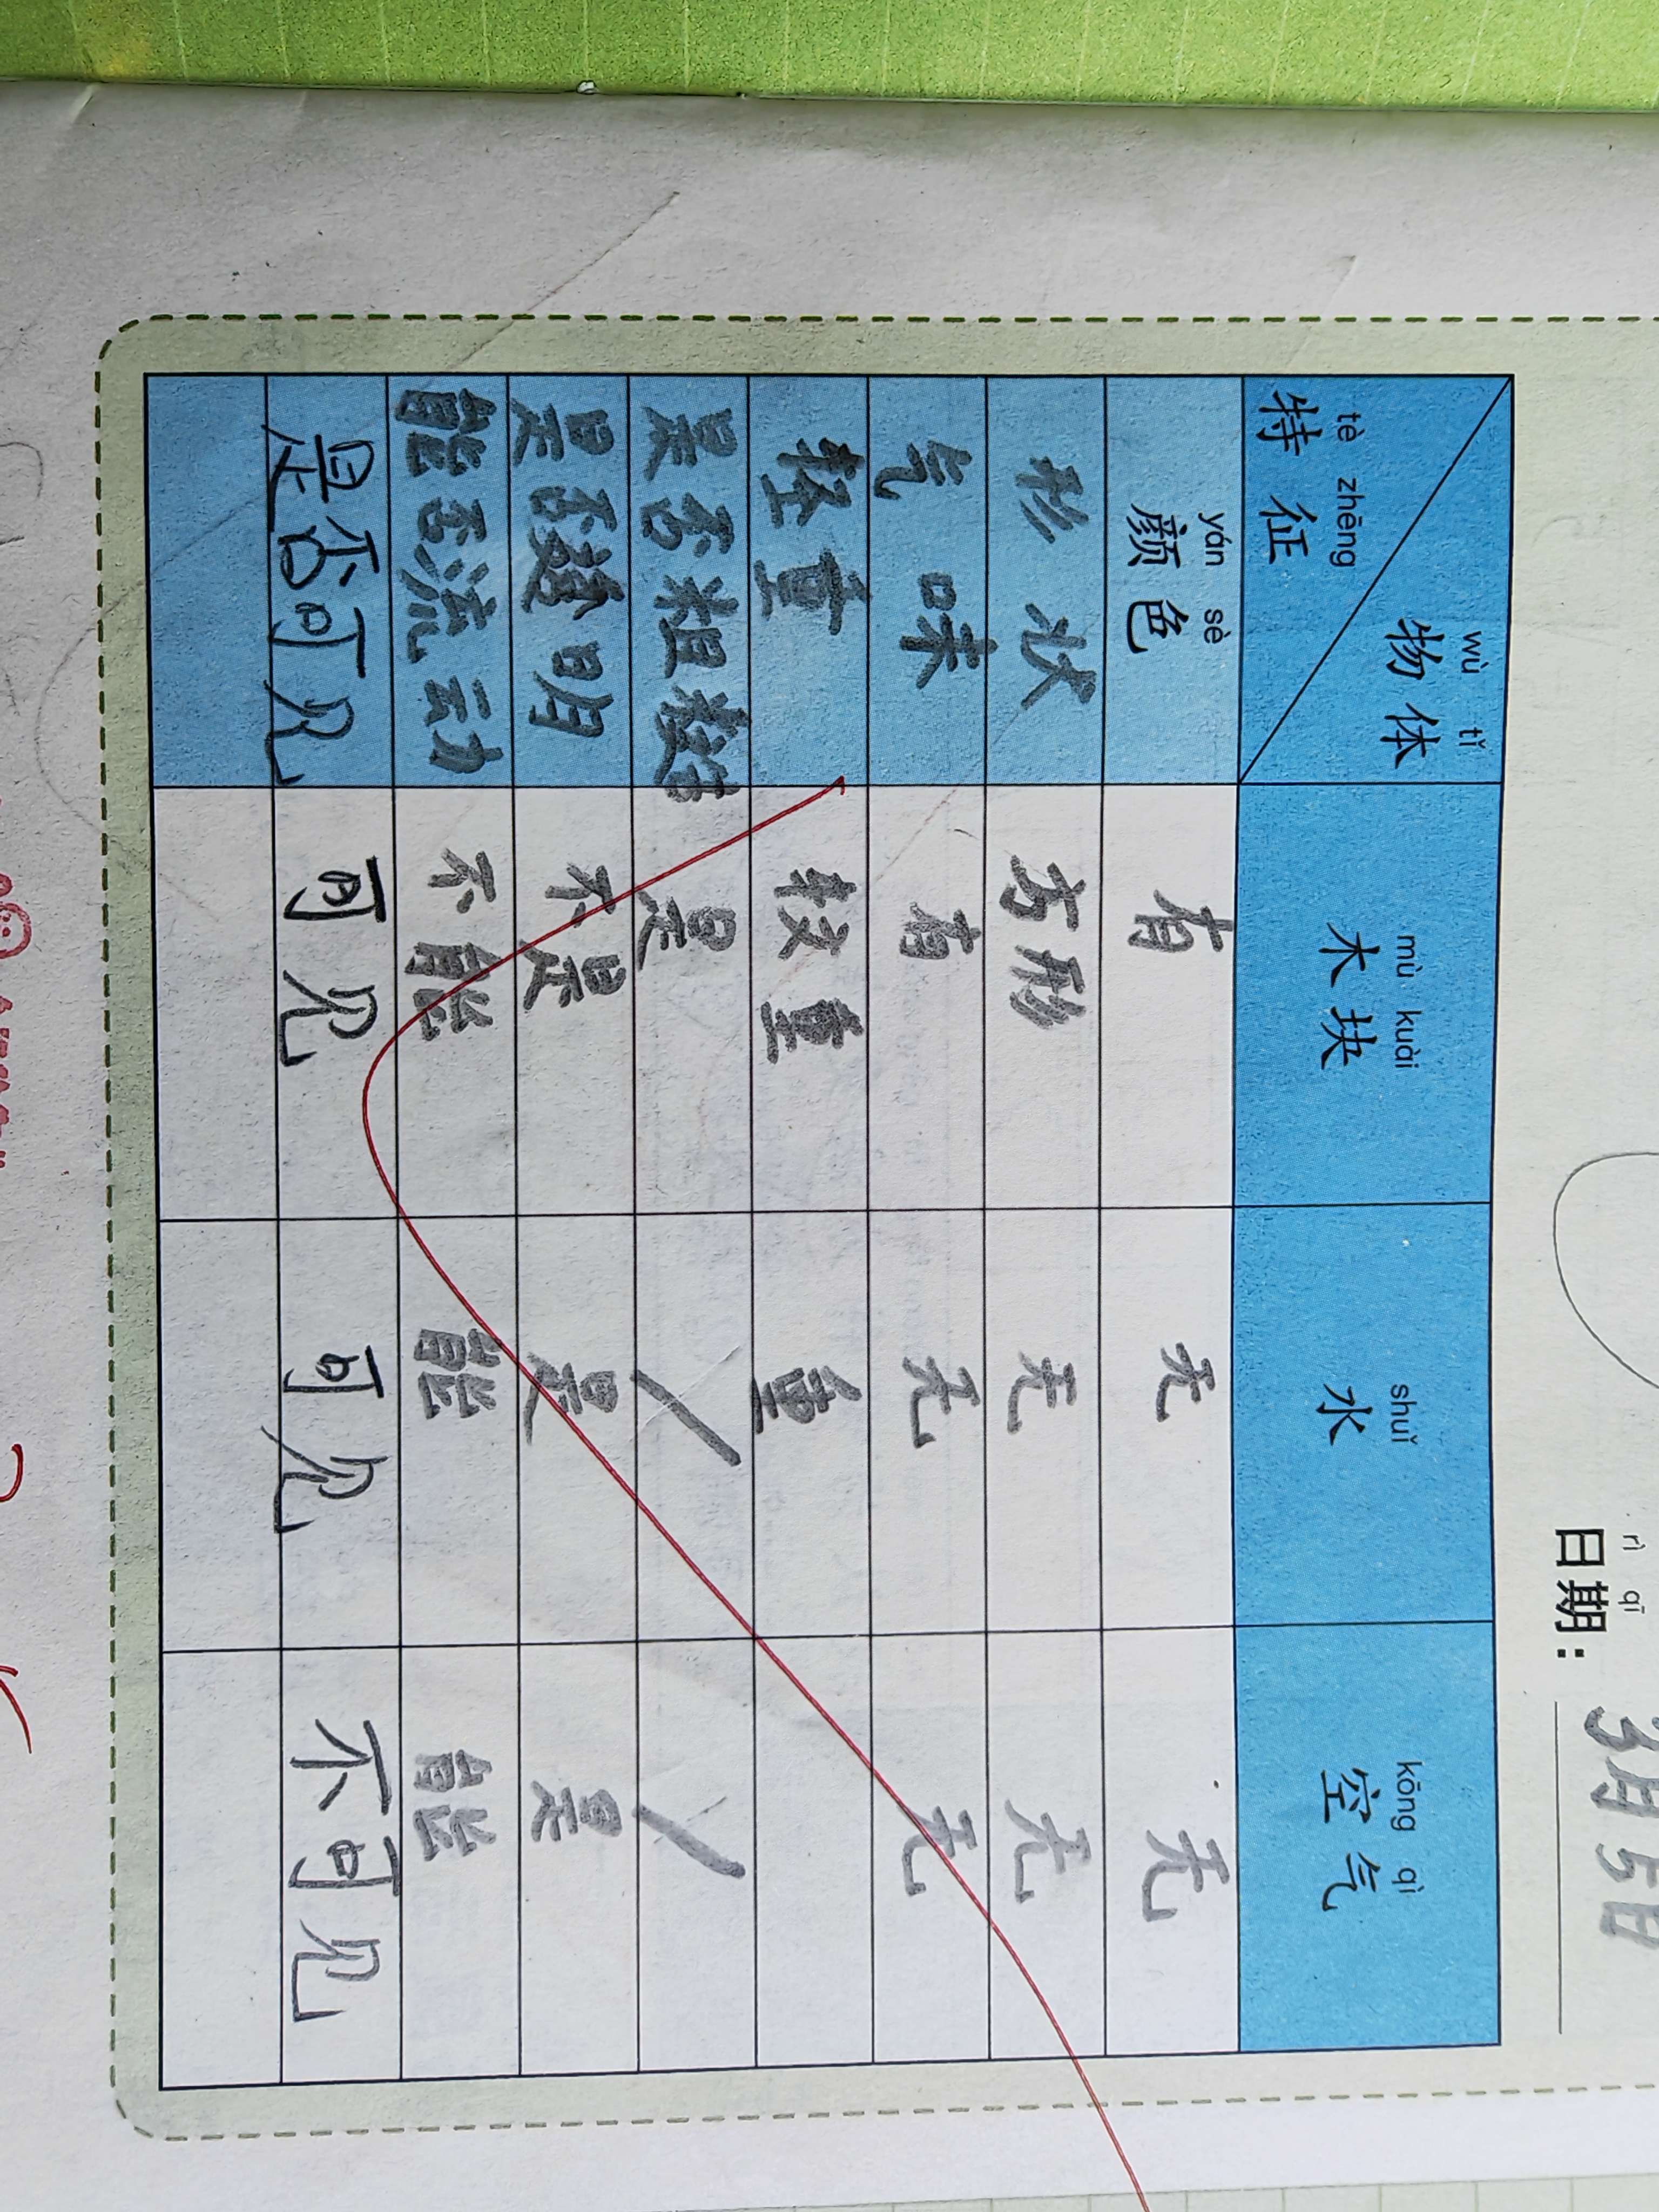 rì qī
日期： 3月5日
wù tǐ
物体
tè zhēng
特征
mù kuài
木块
shuǐ
水
kōng qì
空气
yán sè
颜色 有 无 无
形状 方形 无 无
气味 有 无 无
轻重 较重 重
是否粗糙 是 / /
是否透明 不是 是 是
能否流动 不能 能 能
是否可见 可见 可见 不可见